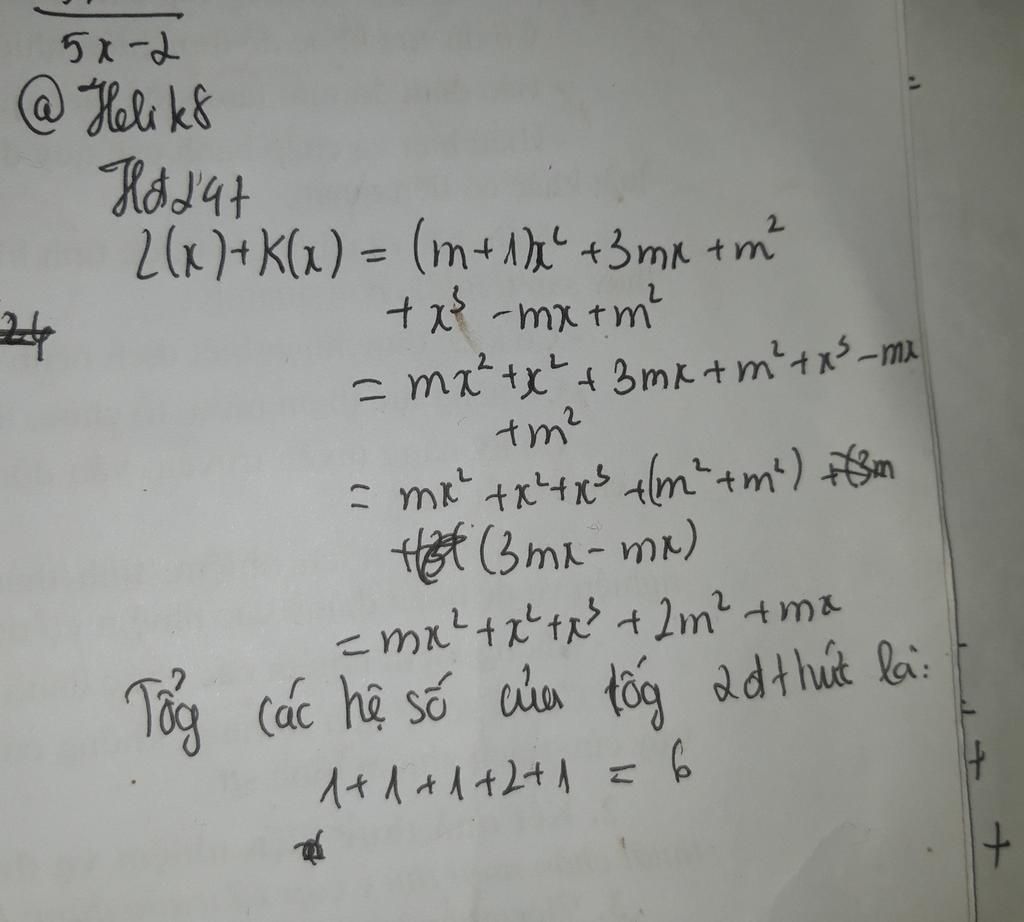 5x-2
@ Helik8
L(x)+K(x) = (m+1)x² +3mx +m²
+ x³ -mx +m²
= mx² +x² + 3mx + m² + x³ - mx
+m²
= mx² +x²+x³ +(m²+m²)
(3mx - mx)
= mx² +x²+x³ + 2m² + mx
Tổg các hệ số của tổg 2đthức là:
1+1+1+2+1 = 6